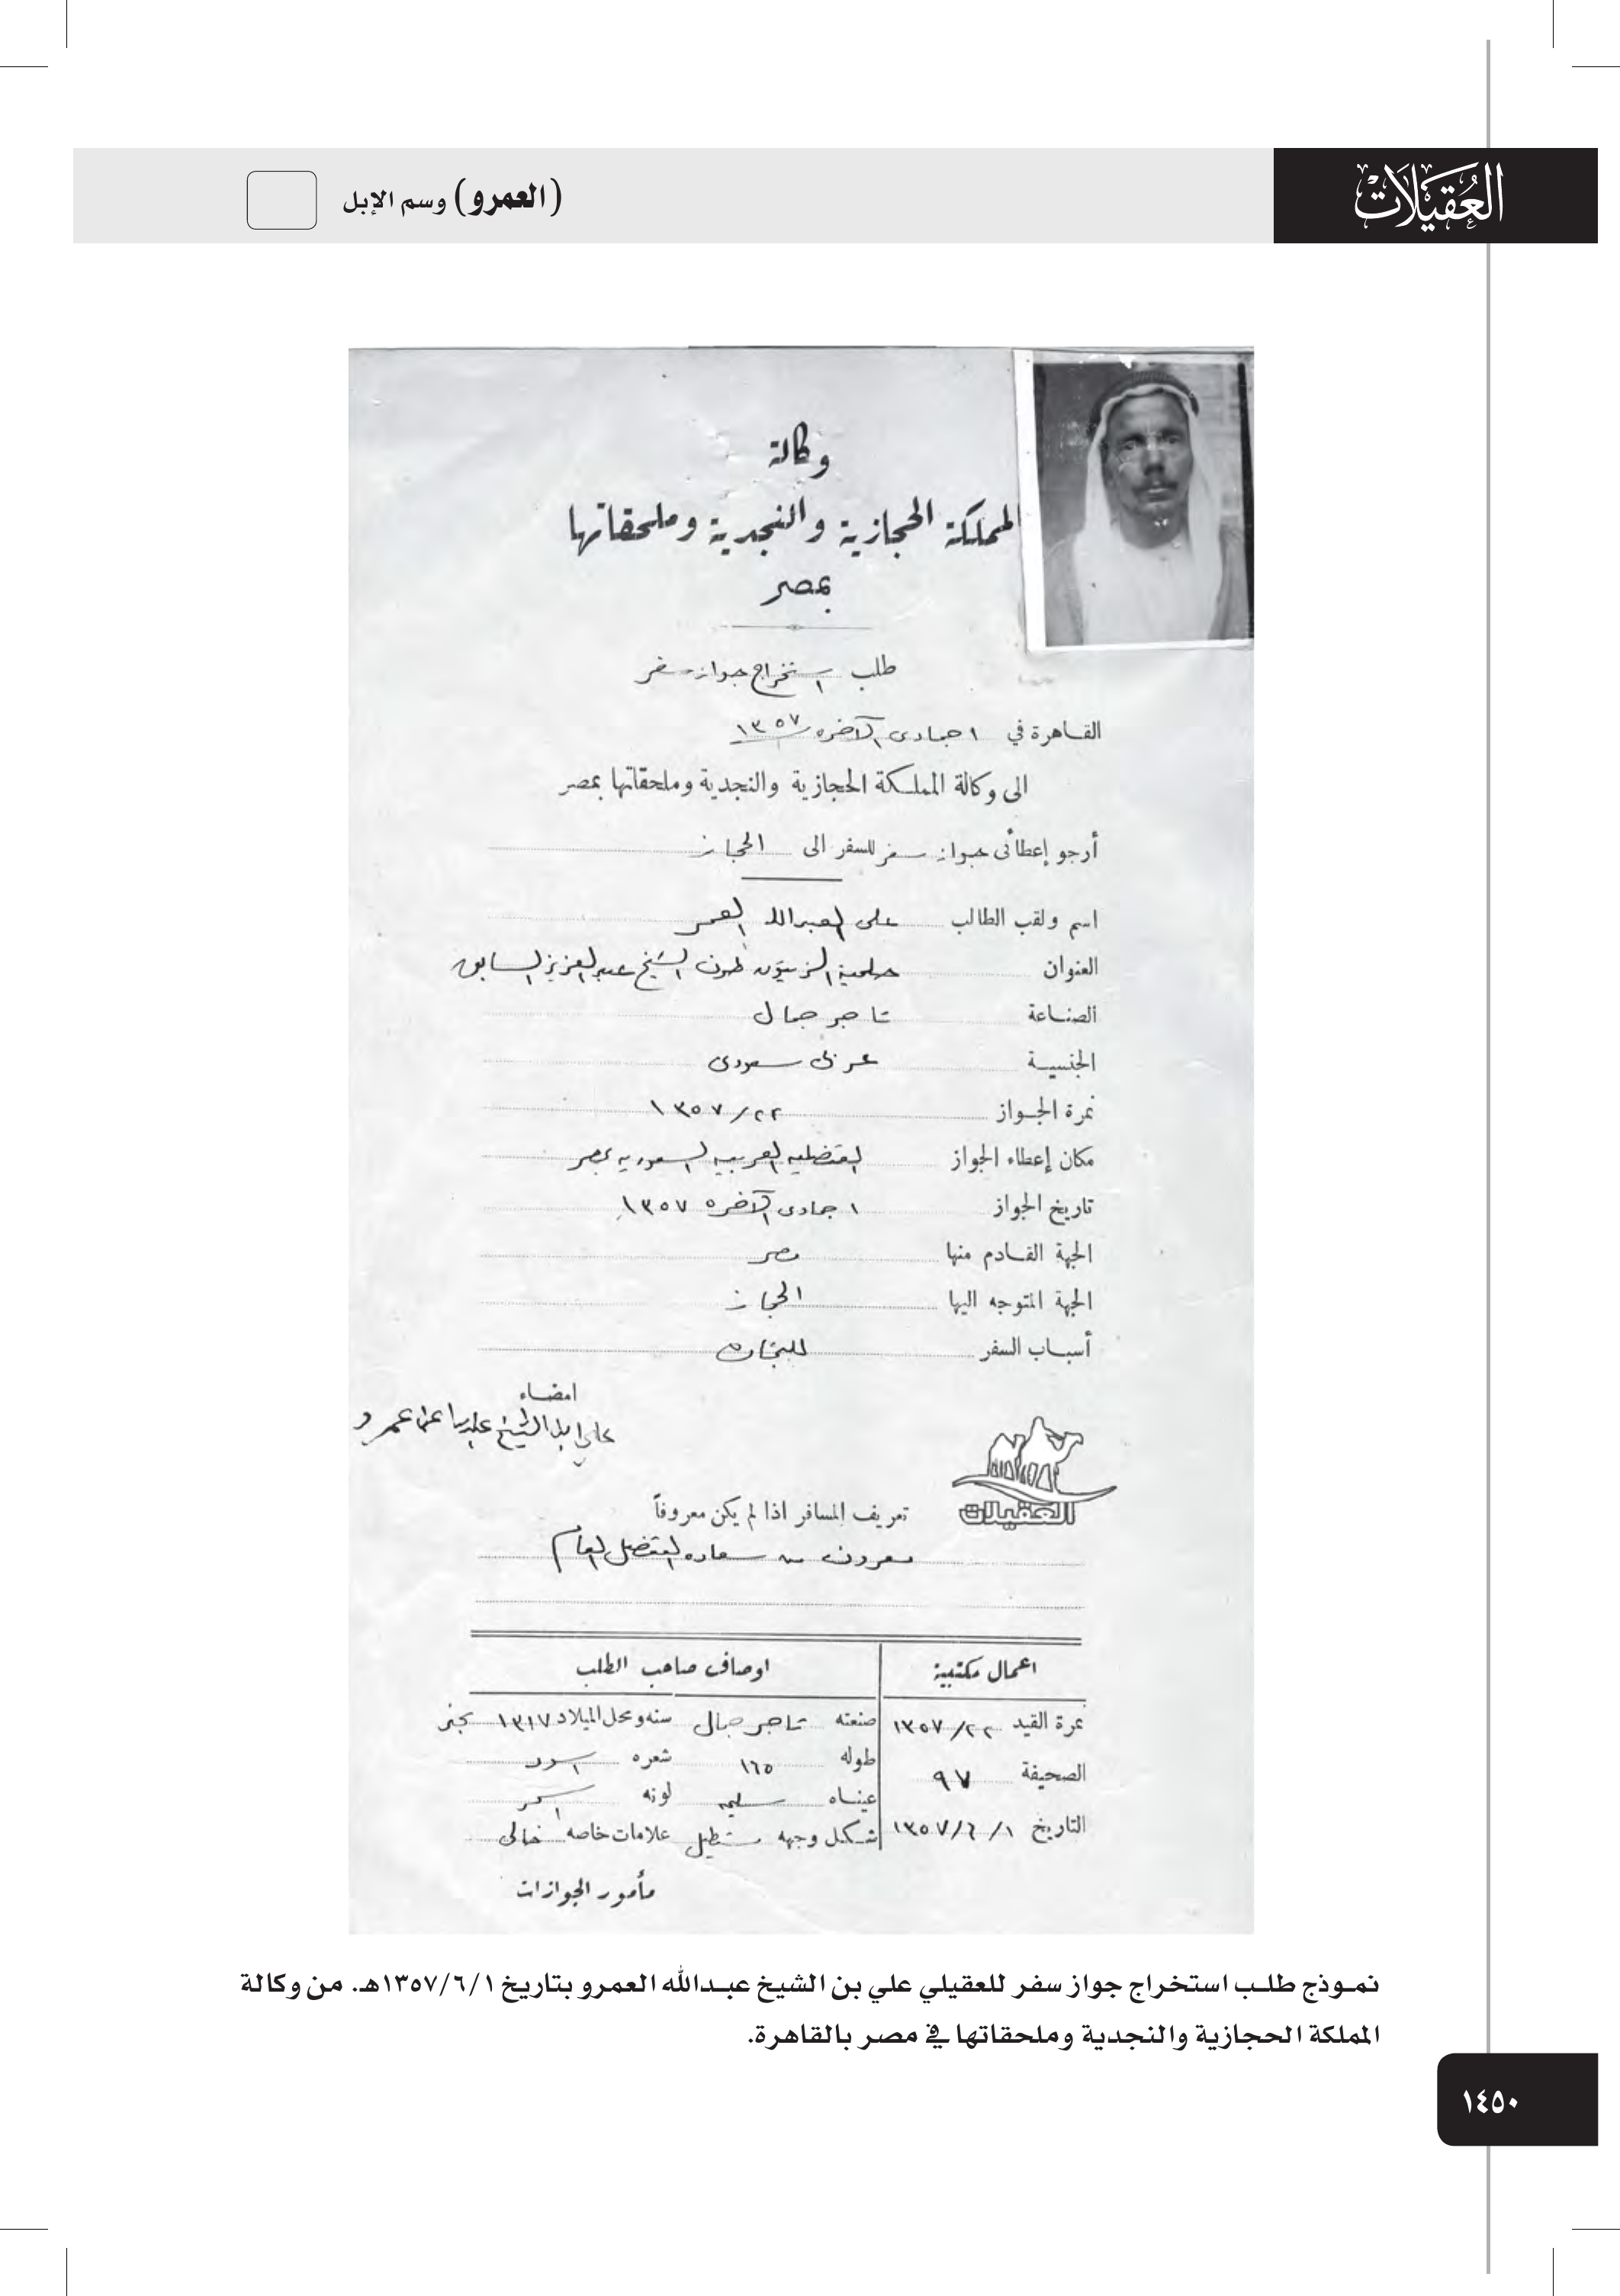 العُقيلات
(العمرو) وسم الإبل
وكالة
المملكة الحجازية والنجدية وملحقاتها
بمصر
طلب استخراج جواز سفر
القاهرة في ١ جمادى الآخره ١٣٥٧
الى وكالة المملكة الحجازية والنجدية وملحقاتها بمصر
أرجو إعطائى جواز سفر للسفر الى الحجاز
اسم ولقب الطالب على العبدالله العمر
العنوان حلمية الزيتون طرف الشيخ عبدالعزيز السابق
الصناعة تاجر جمال
الجنسية عربى سعودى
نمرة الجواز ٢٢/١٣٥٧
مكان إعطاء الجواز القنصليه العربيه السعوديه بمصر
تاريخ الجواز ١ جمادى الآخره ١٣٥٧
الجهة القادم منها مصر
الجهة المتوجه اليها الحجاز
أسباب السفر للتجاره
امضاء
علي ابن الشيخ عمرو
العقيلات
تعريف المسافر اذا لم يكن معروفاً
معروف من سعاده القنصل العام
اعمال مكتبية
اوصاف صاحب الطلب
نمرة القيد ٢٢/١٣٥٧
صنعته تاجر جمال سنه ومحل الميلاد ١٣١٧ بنجد
الصحيفة ٩٧
طوله ١٦٥ شعره اسود
عيناه سليمه لونه اسمر
التاريخ ١/٦/١٣٥٧
شكل وجهه مستطيل علامات خاصه خالى
مأمور الجوازات
نموذج طلب استخراج جواز سفر للعقيلي علي بن الشيخ عبدالله العمرو بتاريخ ١/٦/١٣٥٧هـ. من وكالة
المملكة الحجازية والنجدية وملحقاتها في مصر بالقاهرة.
١٤٥٠